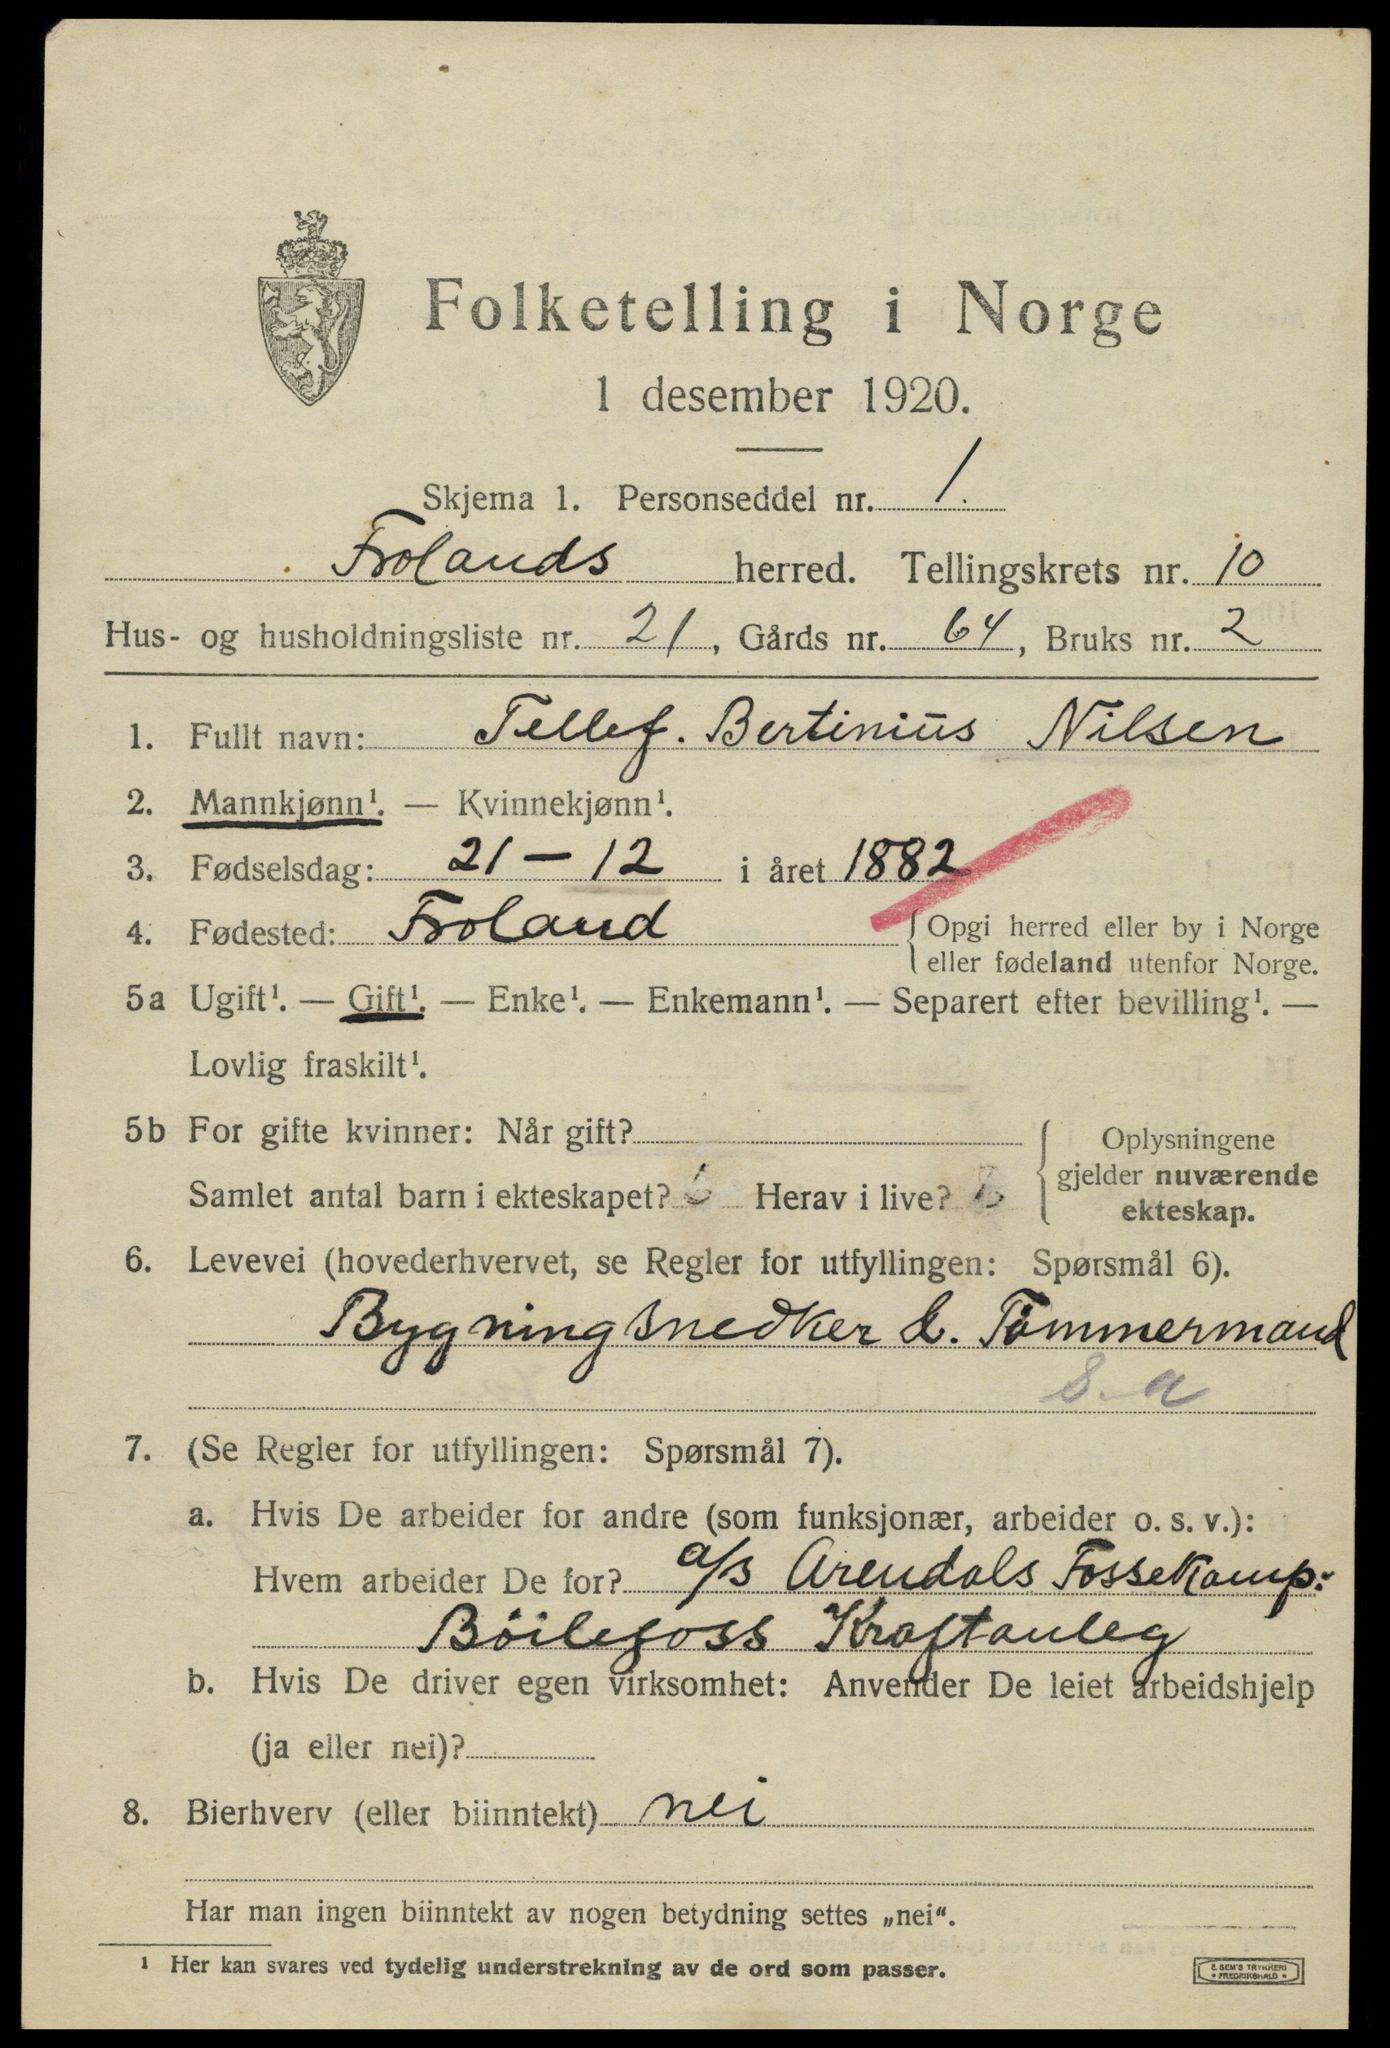 Folketelling i Norge
1 desember 1920.
Skjema 1. Personseddel nr. 1.
Frolands herred. Tellingskrets nr. 10
Hus- og husholdningsliste nr. 21, Gårds nr. 64, Bruks nr. 2
1. Fullt navn: Tellef. Bertinius Nilsen
2. Mannkjønn¹. — Kvinnekjønn¹.
3. Fødselsdag: 21 — 12 i året 1882
4. Fødested: Froland { Opgi herred eller by i Norge
eller fødeland utenfor Norge.
5a Ugift¹. — Gift¹. — Enke¹. — Enkemann¹. — Separert efter bevilling¹. —
Lovlig fraskilt¹.
5b For gifte kvinner: Når gift?
Samlet antal barn i ekteskapet? Herav i live?
{ Oplysningene
gjelder nuværende
ekteskap.
6. Levevei (hovederhvervet, se Regler for utfyllingen: Spørsmål 6).
Bygningsnedker &. Tømmermand
S. a
7. (Se Regler for utfyllingen: Spørsmål 7).
a. Hvis De arbeider for andre (som funksjonær, arbeider o. s. v.):
Hvem arbeider De for? a/s Arendals Fossekomp:
Böilefoss Kraftanleg
b. Hvis De driver egen virksomhet: Anvender De leiet arbeidshjelp
(ja eller nei)?
8. Bierhverv (eller biinntekt) nei
Har man ingen biinntekt av nogen betydning settes „nei“.
¹ Her kan svares ved tydelig understrekning av de ord som passer.
E. SEM'S TRYKKERI
* FREDRIKSHALD *